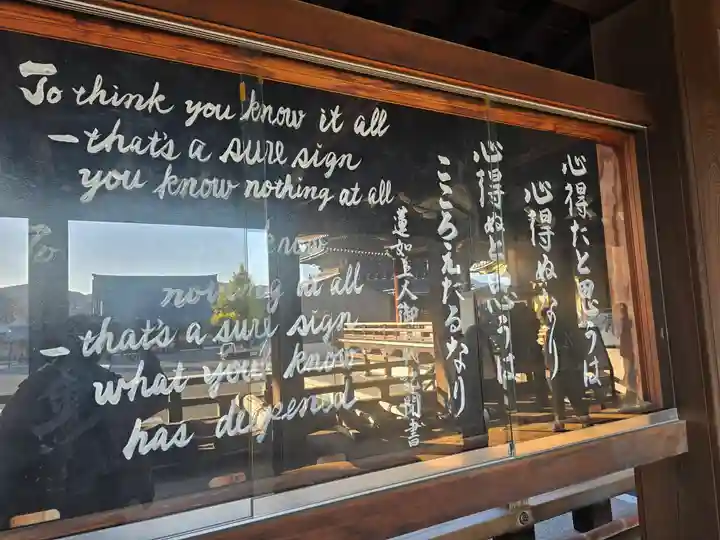 To think you know it all
—that's a sure sign
you know nothing at all
To know
nothing at all
—that's a sure sign
what you know
has deepened
心得たと思うは
心得ぬなり
心得ぬと思うは
こころえたるなり
蓮如上人御一代記聞書